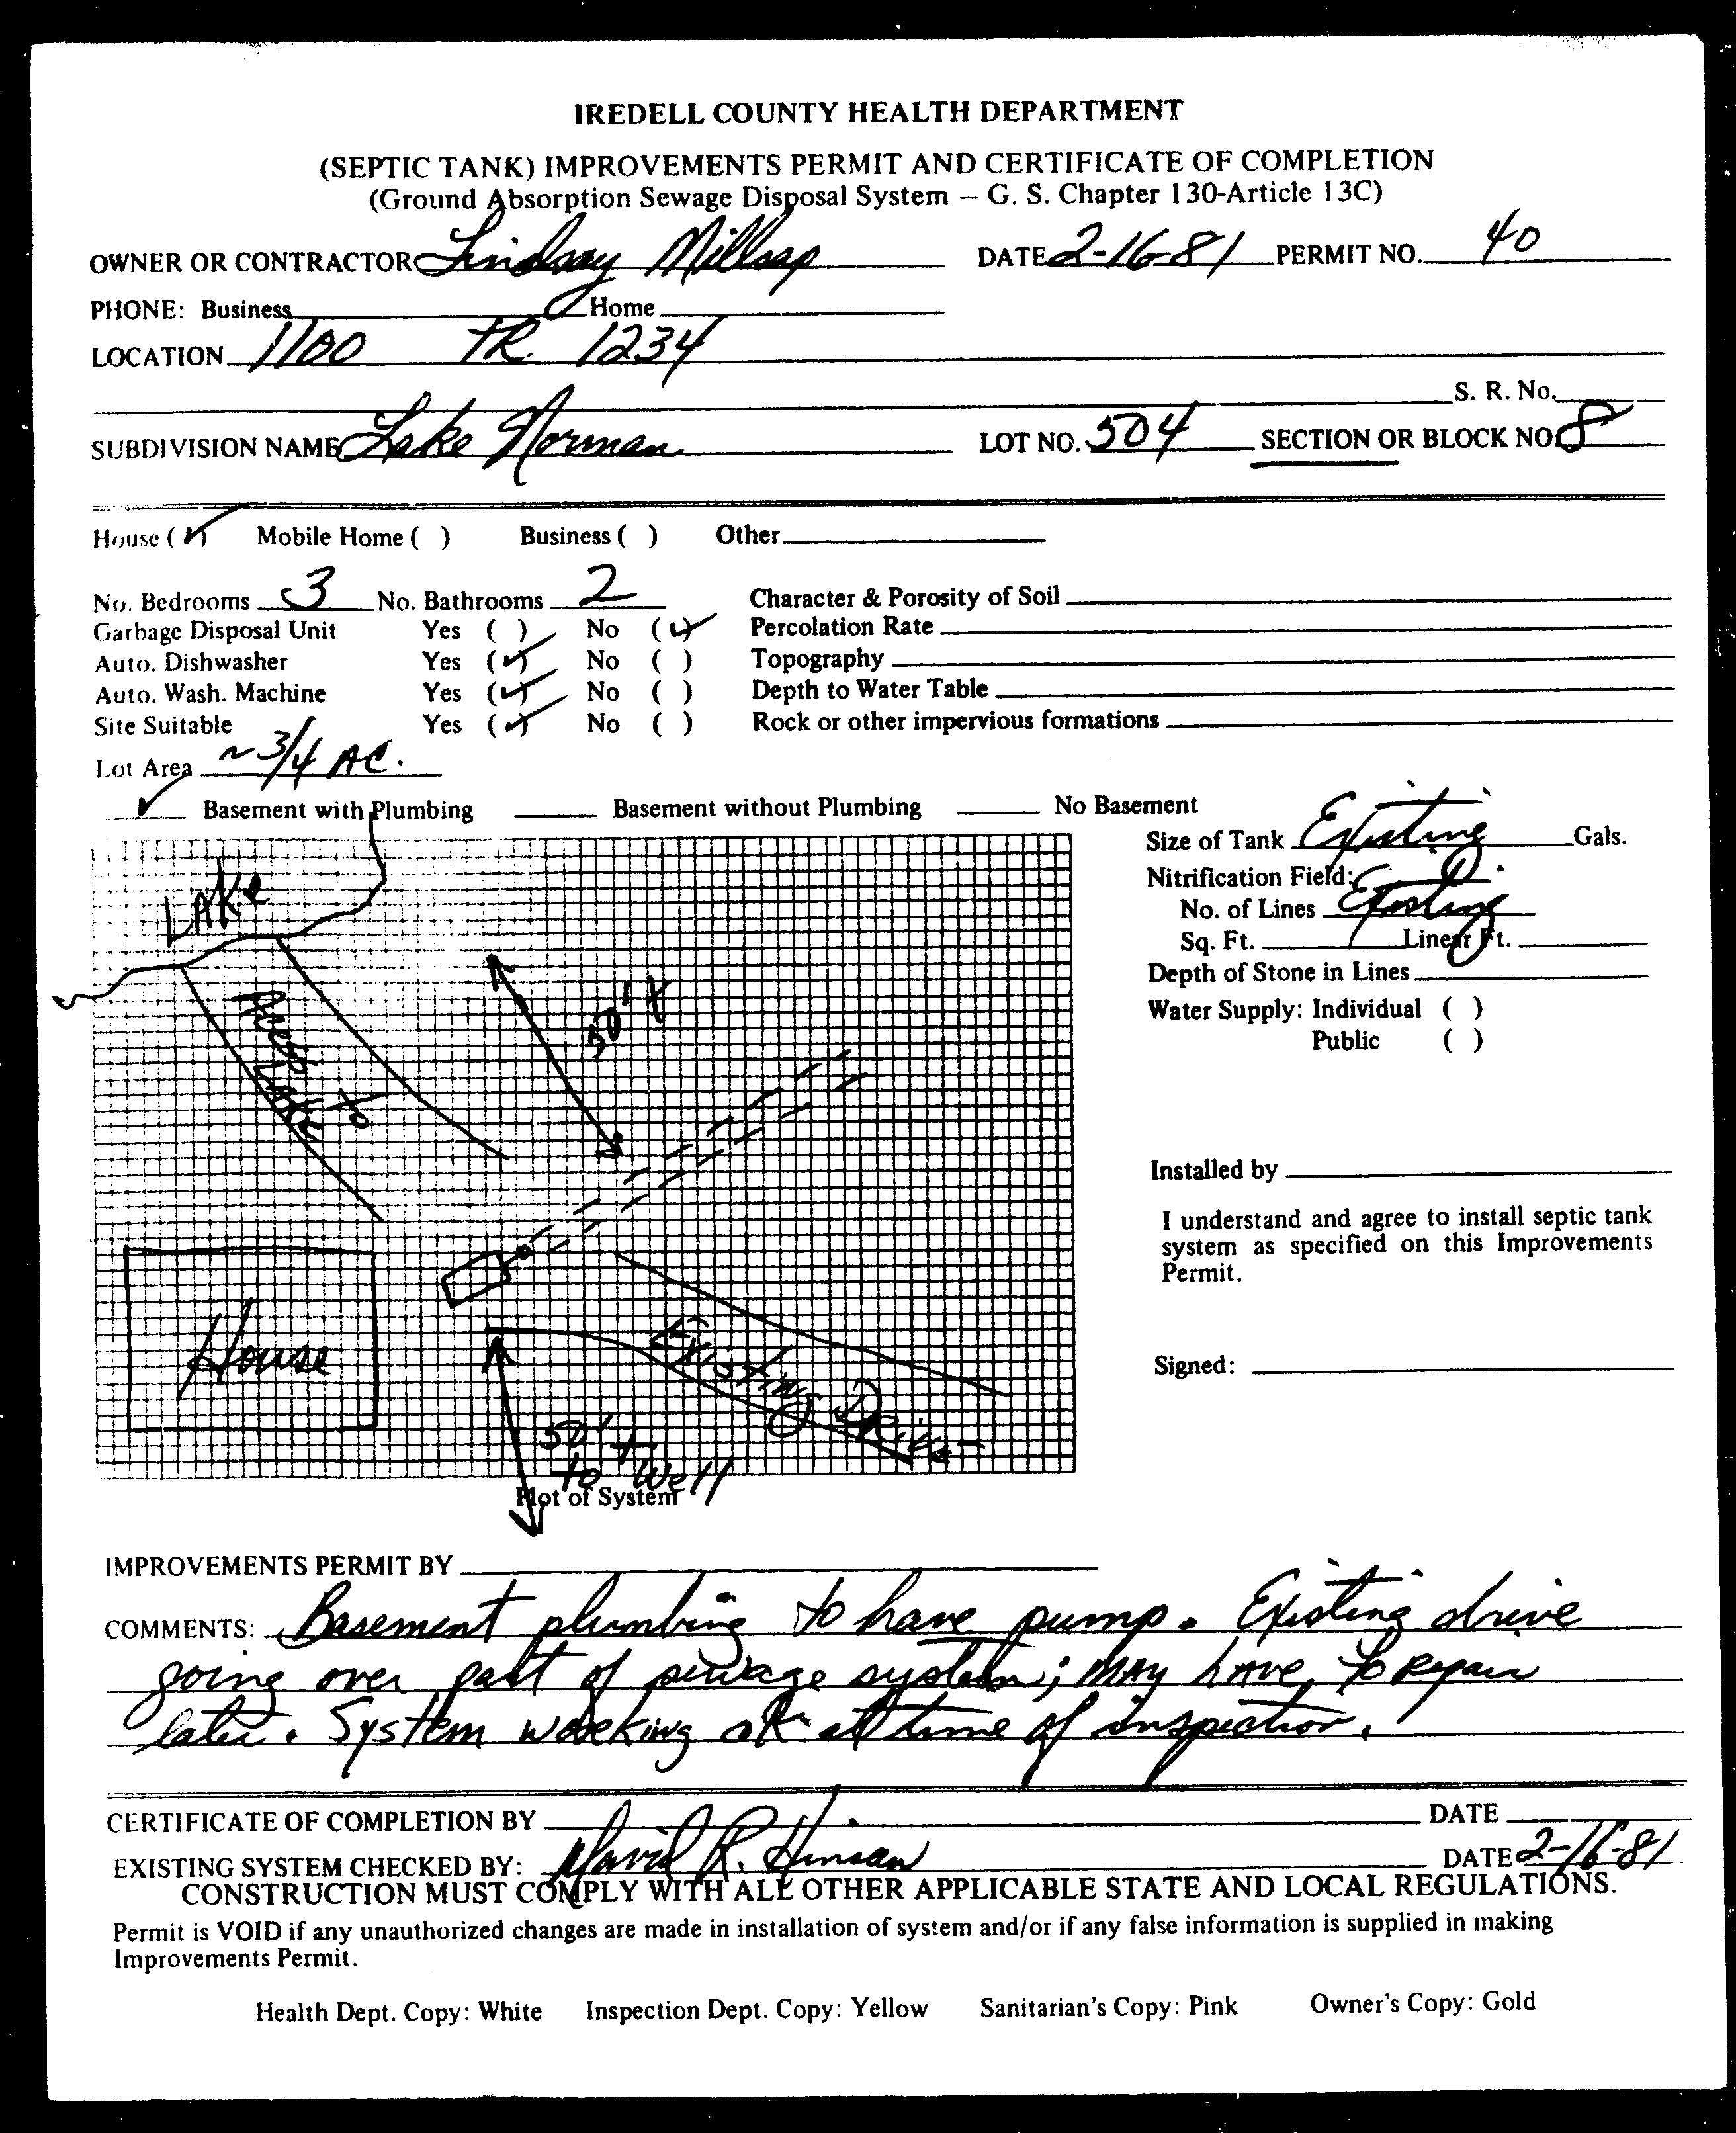 IREDELL COUNTY HEALTH DEPARTMENT
(SEPTIC TANK) IMPROVEMENTS PERMIT AND CERTIFICATE OF COMPLETION
(Ground Absorption Sewage Disposal System – G. S. Chapter 130-Article 13C)
OWNER OR CONTRACTOR Lindsay Millsap DATE 2-16-81 PERMIT NO. 40
PHONE: Business Home
LOCATION 1100 TR 1234
S. R. No.
SUBDIVISION NAME Lake Norman LOT NO. 504 SECTION OR BLOCK NO. 8
House (✓) Mobile Home ( ) Business ( ) Other
No. Bedrooms 3 No. Bathrooms 2 Character & Porosity of Soil
Garbage Disposal Unit Yes ( ) No (✓) Percolation Rate
Auto. Dishwasher Yes (✓) No ( ) Topography
Auto. Wash. Machine Yes (✓) No ( ) Depth to Water Table
Site Suitable Yes (✓) No ( ) Rock or other impervious formations
Lot Area ~3/4 AC.
✓ Basement with Plumbing Basement without Plumbing No Basement
Size of Tank Existing Gals.
Nitrification Field:
No. of Lines Existing
Sq. Ft. Linear Ft.
Depth of Stone in Lines
Water Supply: Individual ( )
Public ( )
LAKE
Access to
Lake
50'±
House
Existing Drive
50' +
to Well
Plot of System
Installed by
I understand and agree to install septic tank
system as specified on this Improvements
Permit.
Signed:
IMPROVEMENTS PERMIT BY
COMMENTS: Basement plumbing to have pump. Existing drive
going over part of sewage system; MAY HAVE to Repair
later. System working ok at time of inspection.
CERTIFICATE OF COMPLETION BY DATE
EXISTING SYSTEM CHECKED BY: David R. Hinson DATE 2-16-81
CONSTRUCTION MUST COMPLY WITH ALL OTHER APPLICABLE STATE AND LOCAL REGULATIONS.
Permit is VOID if any unauthorized changes are made in installation of system and/or if any false information is supplied in making
Improvements Permit.
Health Dept. Copy: White Inspection Dept. Copy: Yellow Sanitarian's Copy: Pink Owner's Copy: Gold